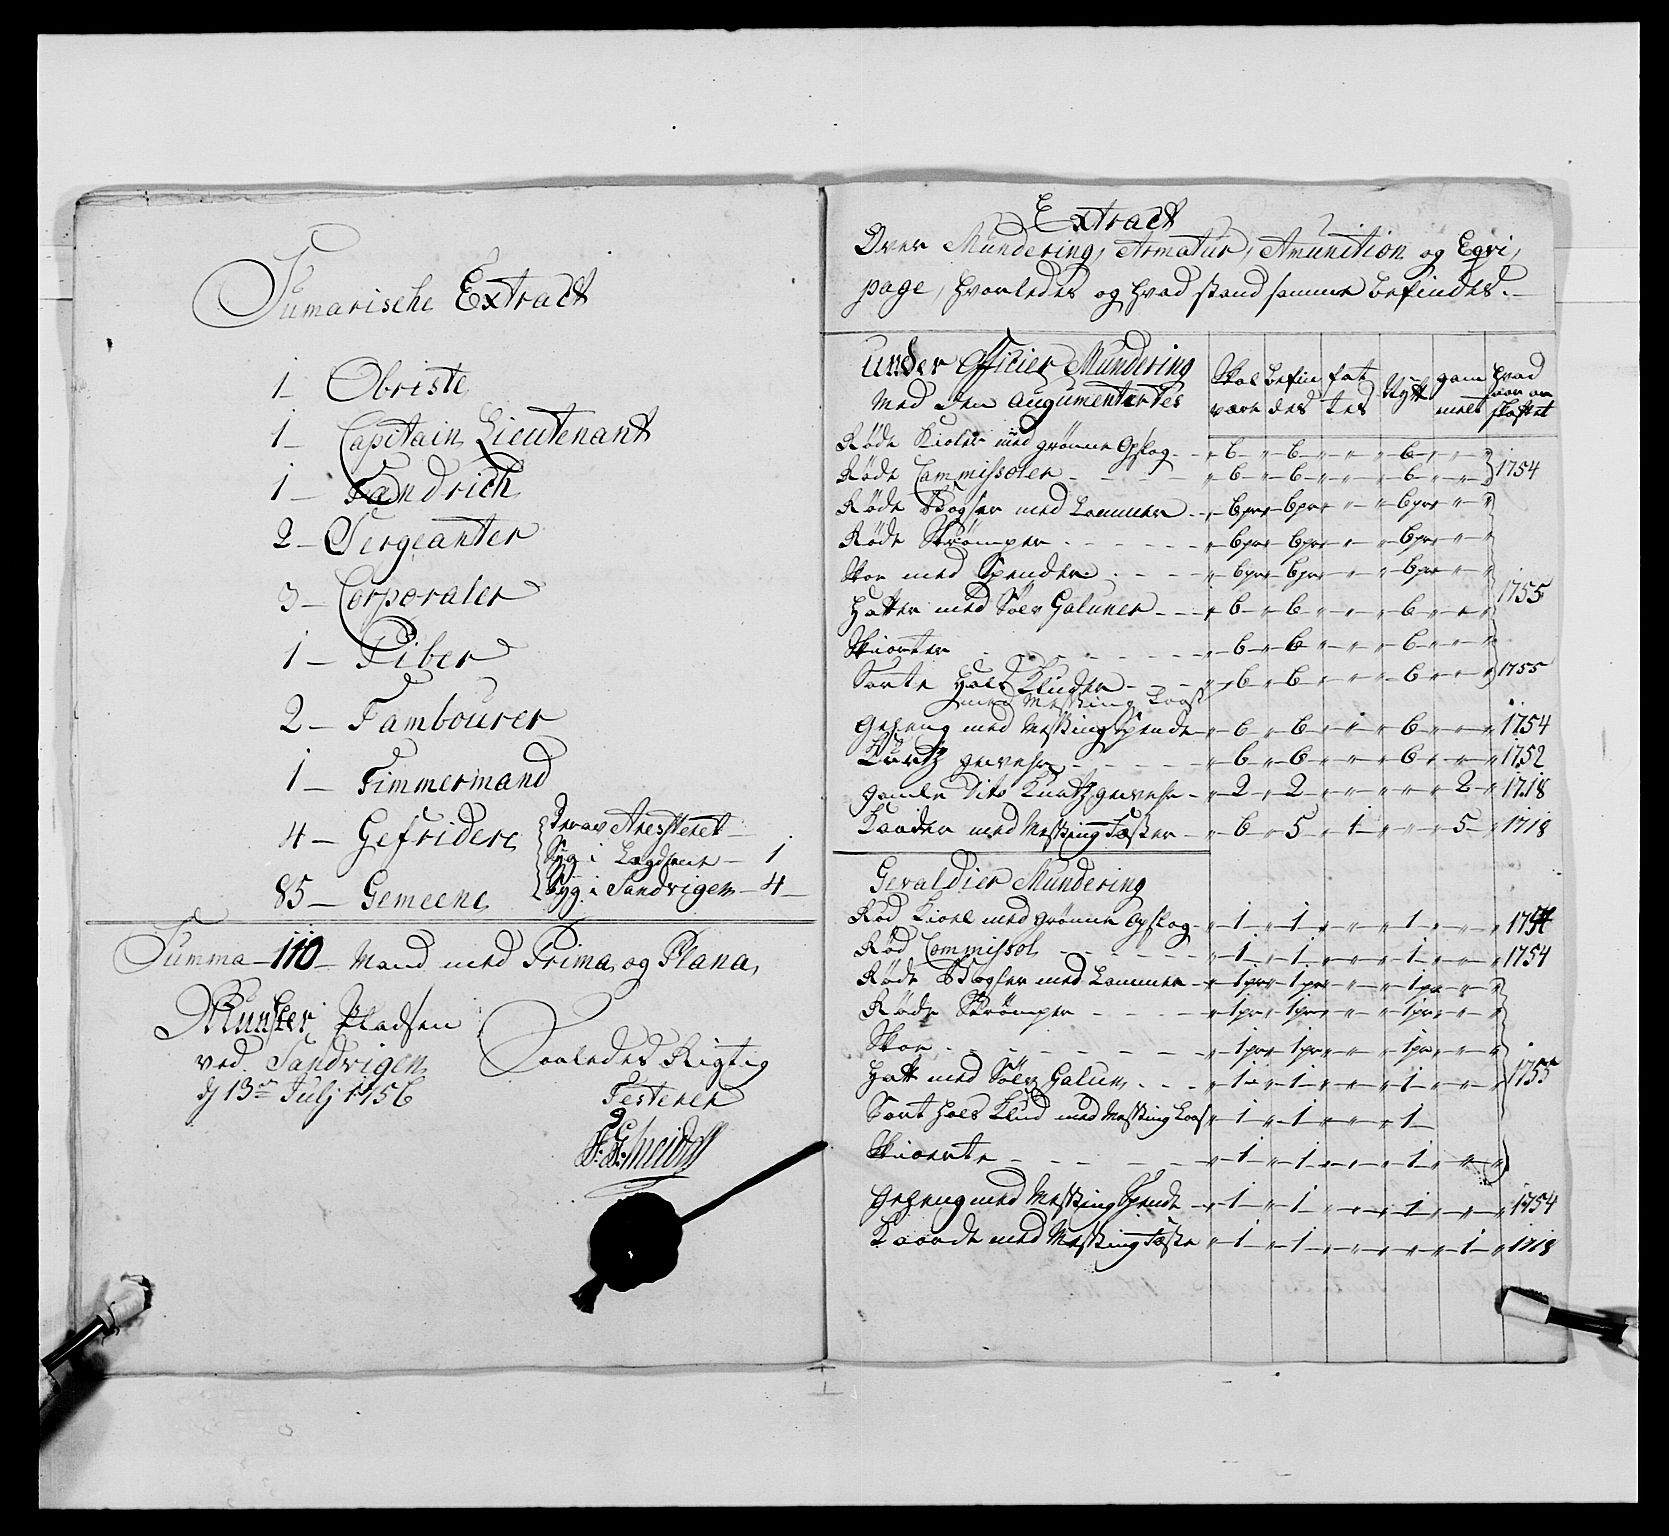 Sumarische Extract
1 Obriste
1 Capitain Lieutenant
1 Fandrich
2 Sergeanter
3 Corporaler
1 Piber
2 Tambourer
1 Timmermand
4 Gefridere
85 Gemeene
Derav Aressteret
Syg i Lægdene 1
Syg i Sandvigen 4
Summa 110 Mand med Prima og Plana,
Munster Pladsen
ved Sandvigen
d 13de Julj 1756
Saaledes Rigtig
Testerer
Extract
Over Mundering, Armatur, Amunition og Eqvi,
page, hvorledes og hvad stand samme befindes.
Under Officier Mundering
Med den Augumenterte
Skal være
Befin des
fat tes
Nytt
gam melt
hvad aar an skaffet
Røde Kioler med grønne Opslag 6 6 " 6 "
Røde Commissoler 6 6 " 6 " 1754
Røde Boxser med Lommer 6 pr 6 pr " 6 pr "
Røde Strømper 6 pr 6 pr " 6 pr "
Skoe med Spender 6 pr 6 pr " 6 pr "
Hatter med Sølv Galuner 6 6 " 6 " 1755
Skiorter 6 6 " 6 "
Sorte Hals Kluder 6 6 " 6 " 1755
med Messing Laas
Geheng med Messing Spende 6 6 " 6 " 1754
Kurtz gevehr 6 6 " 6 " 1752
gamle Dito Kurtz gevehr 2 2 " " 2 1718
Kaarder med Messing Fæster 6 5 1 " 5 1718
Geraldier Mundering
Rød Kioel med grønne Opslag 1 1 " 1 " 1754
Rød Commissol 1 1 " 1 " 1754
Røde Boxser med Lommer 1 pr 1 pr " 1 pr "
Røde Strømper 1 pr 1 pr " 1 pr "
Skoe 1 pr 1 pr " 1 pr "
Hatt med Sølv Galun 1 1 " 1 " 1755
Sort Hals Klud med Messing Laas 1 1 " 1
Skiorte 1 1 " 1 "
Geheng med Messing Spende 1 1 " 1 " 1754
Kaarde med Messing Fæste 1 1 " " 1 1718